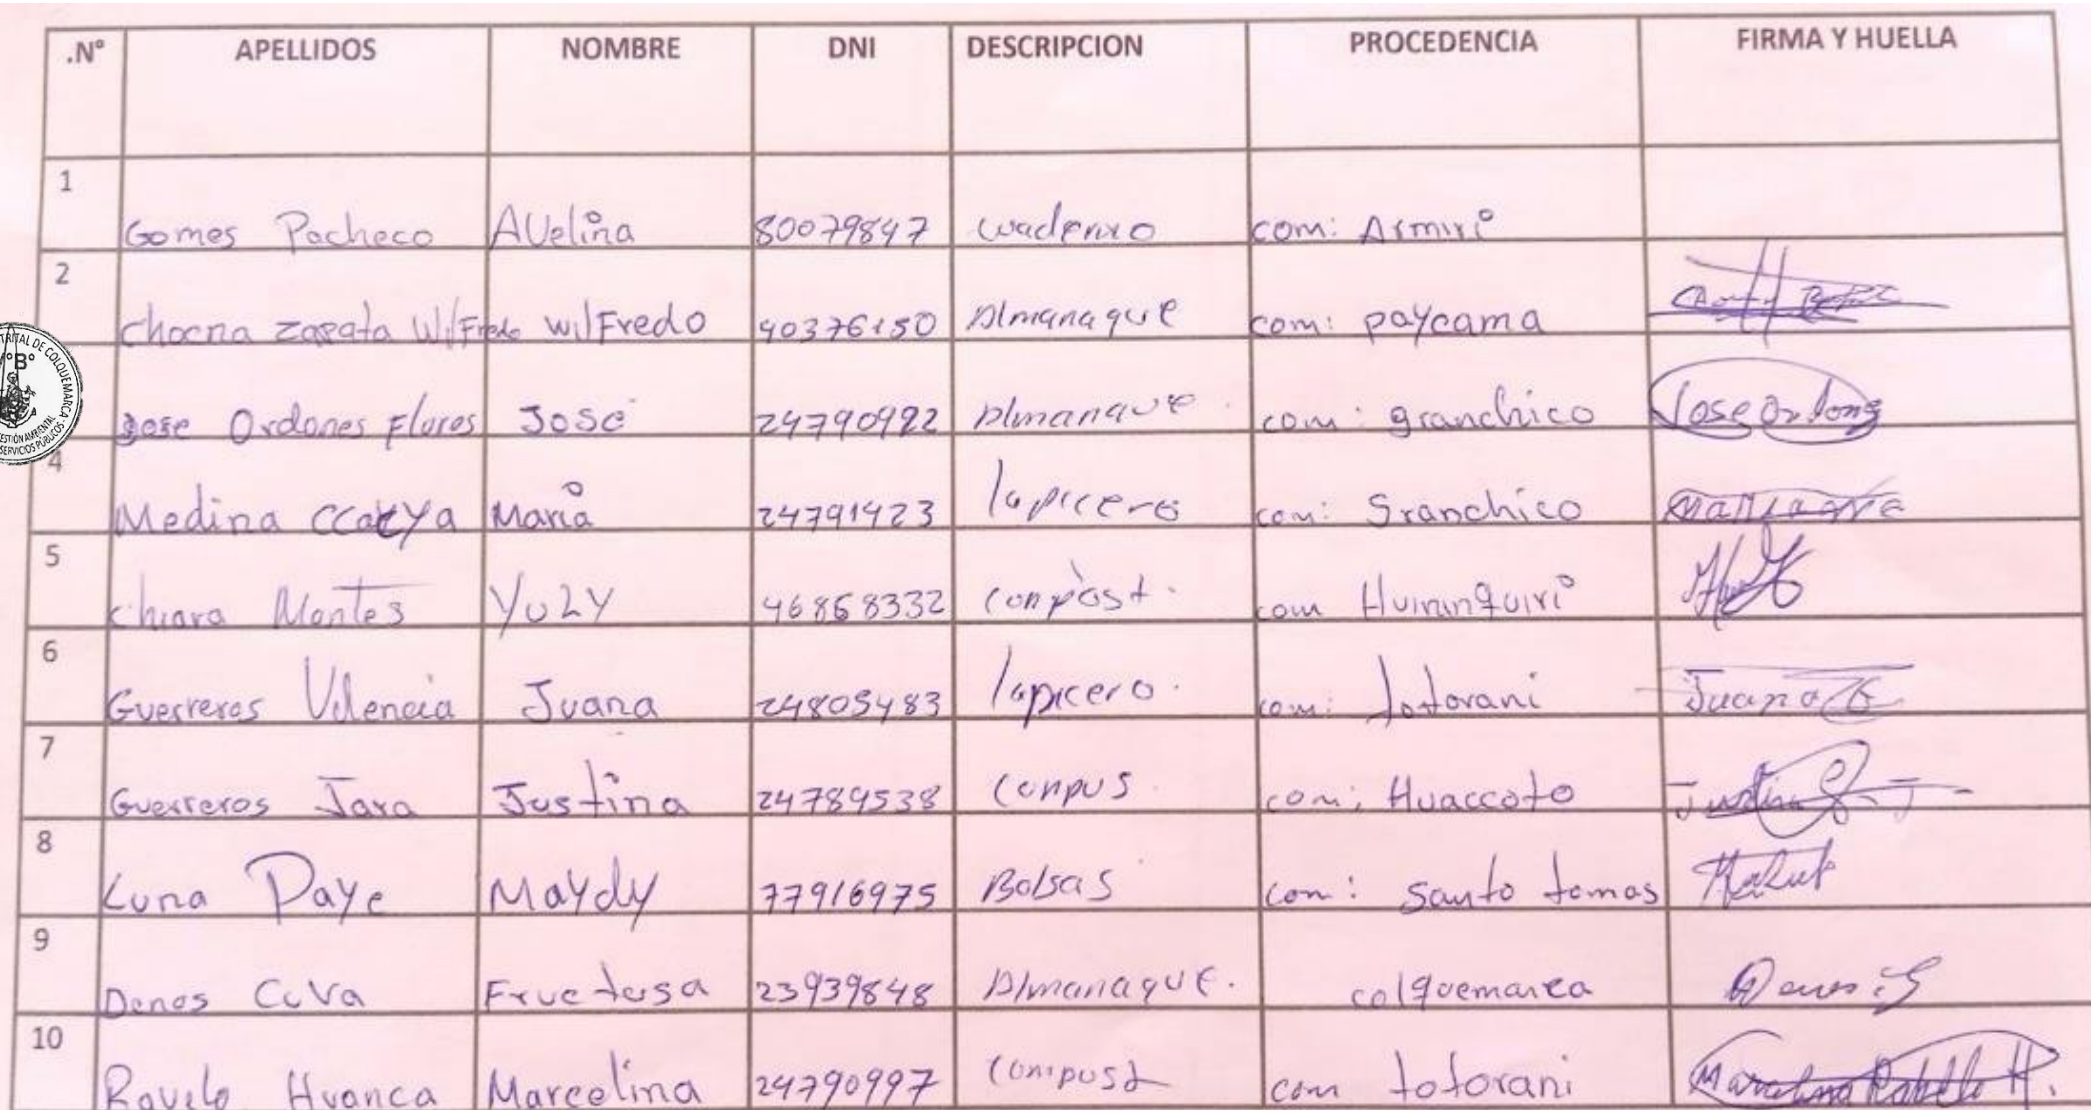 .N° APELLIDOS NOMBRE DNI DESCRIPCION PROCEDENCIA FIRMA Y HUELLA
1 Gomes Pacheco AVelina 80079847 cuaderno com: Armiri
2 Chocna zapata Wilfredo wilFredo 40376150 Almanaque com: paycama
Jose Ordones Flores José 24790922 Almanaque com: granchico Jose Ordong
4 Medina ccaeya Maria 24791423 lapicero com: Granchico
5 Chiara Montes YULY 46868332 conpost. com Huininquiri
6 Guerreros Valencia Juana 24805483 lapicero. com: totorani Juana
7 Guerreros Jara Justina 24789538 Conpus com: Huaccoto Justina
8 Luna Paye Maydy 77916975 Bolsas com: santo tomas
9 Denos CcVa Fructusa 23939848 Almanaque. colquemarca
10 Ravelo Huanca Marcelina 24790997 Compust com totorani Marcelina Rabelo H.
DISTRITAL DE COLQUEMARCA
V°B°
GESTIÓN AMBIENTAL
SERVICIOS PÚBLICOS